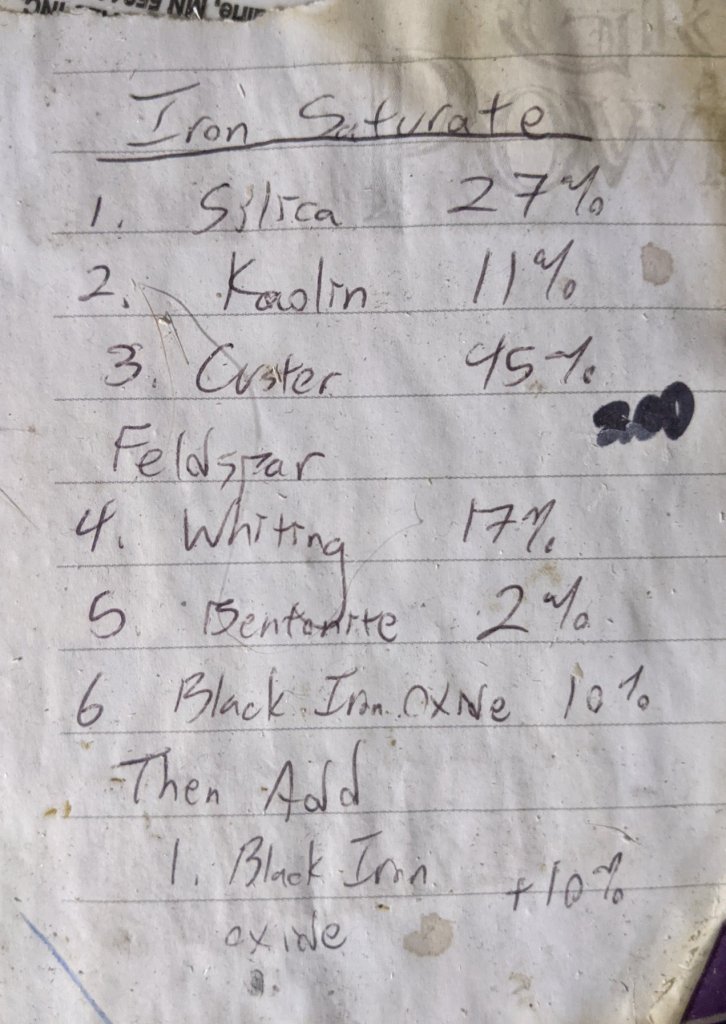 Iron Saturate
1. Silica 27%
2. Kaolin 11%
3. Custer 45%
Feldspar
4. Whiting 17%
5 Bentonite 2%
6 Black Iron oxide 10%
Then Add
1. Black Iron +10%
oxide